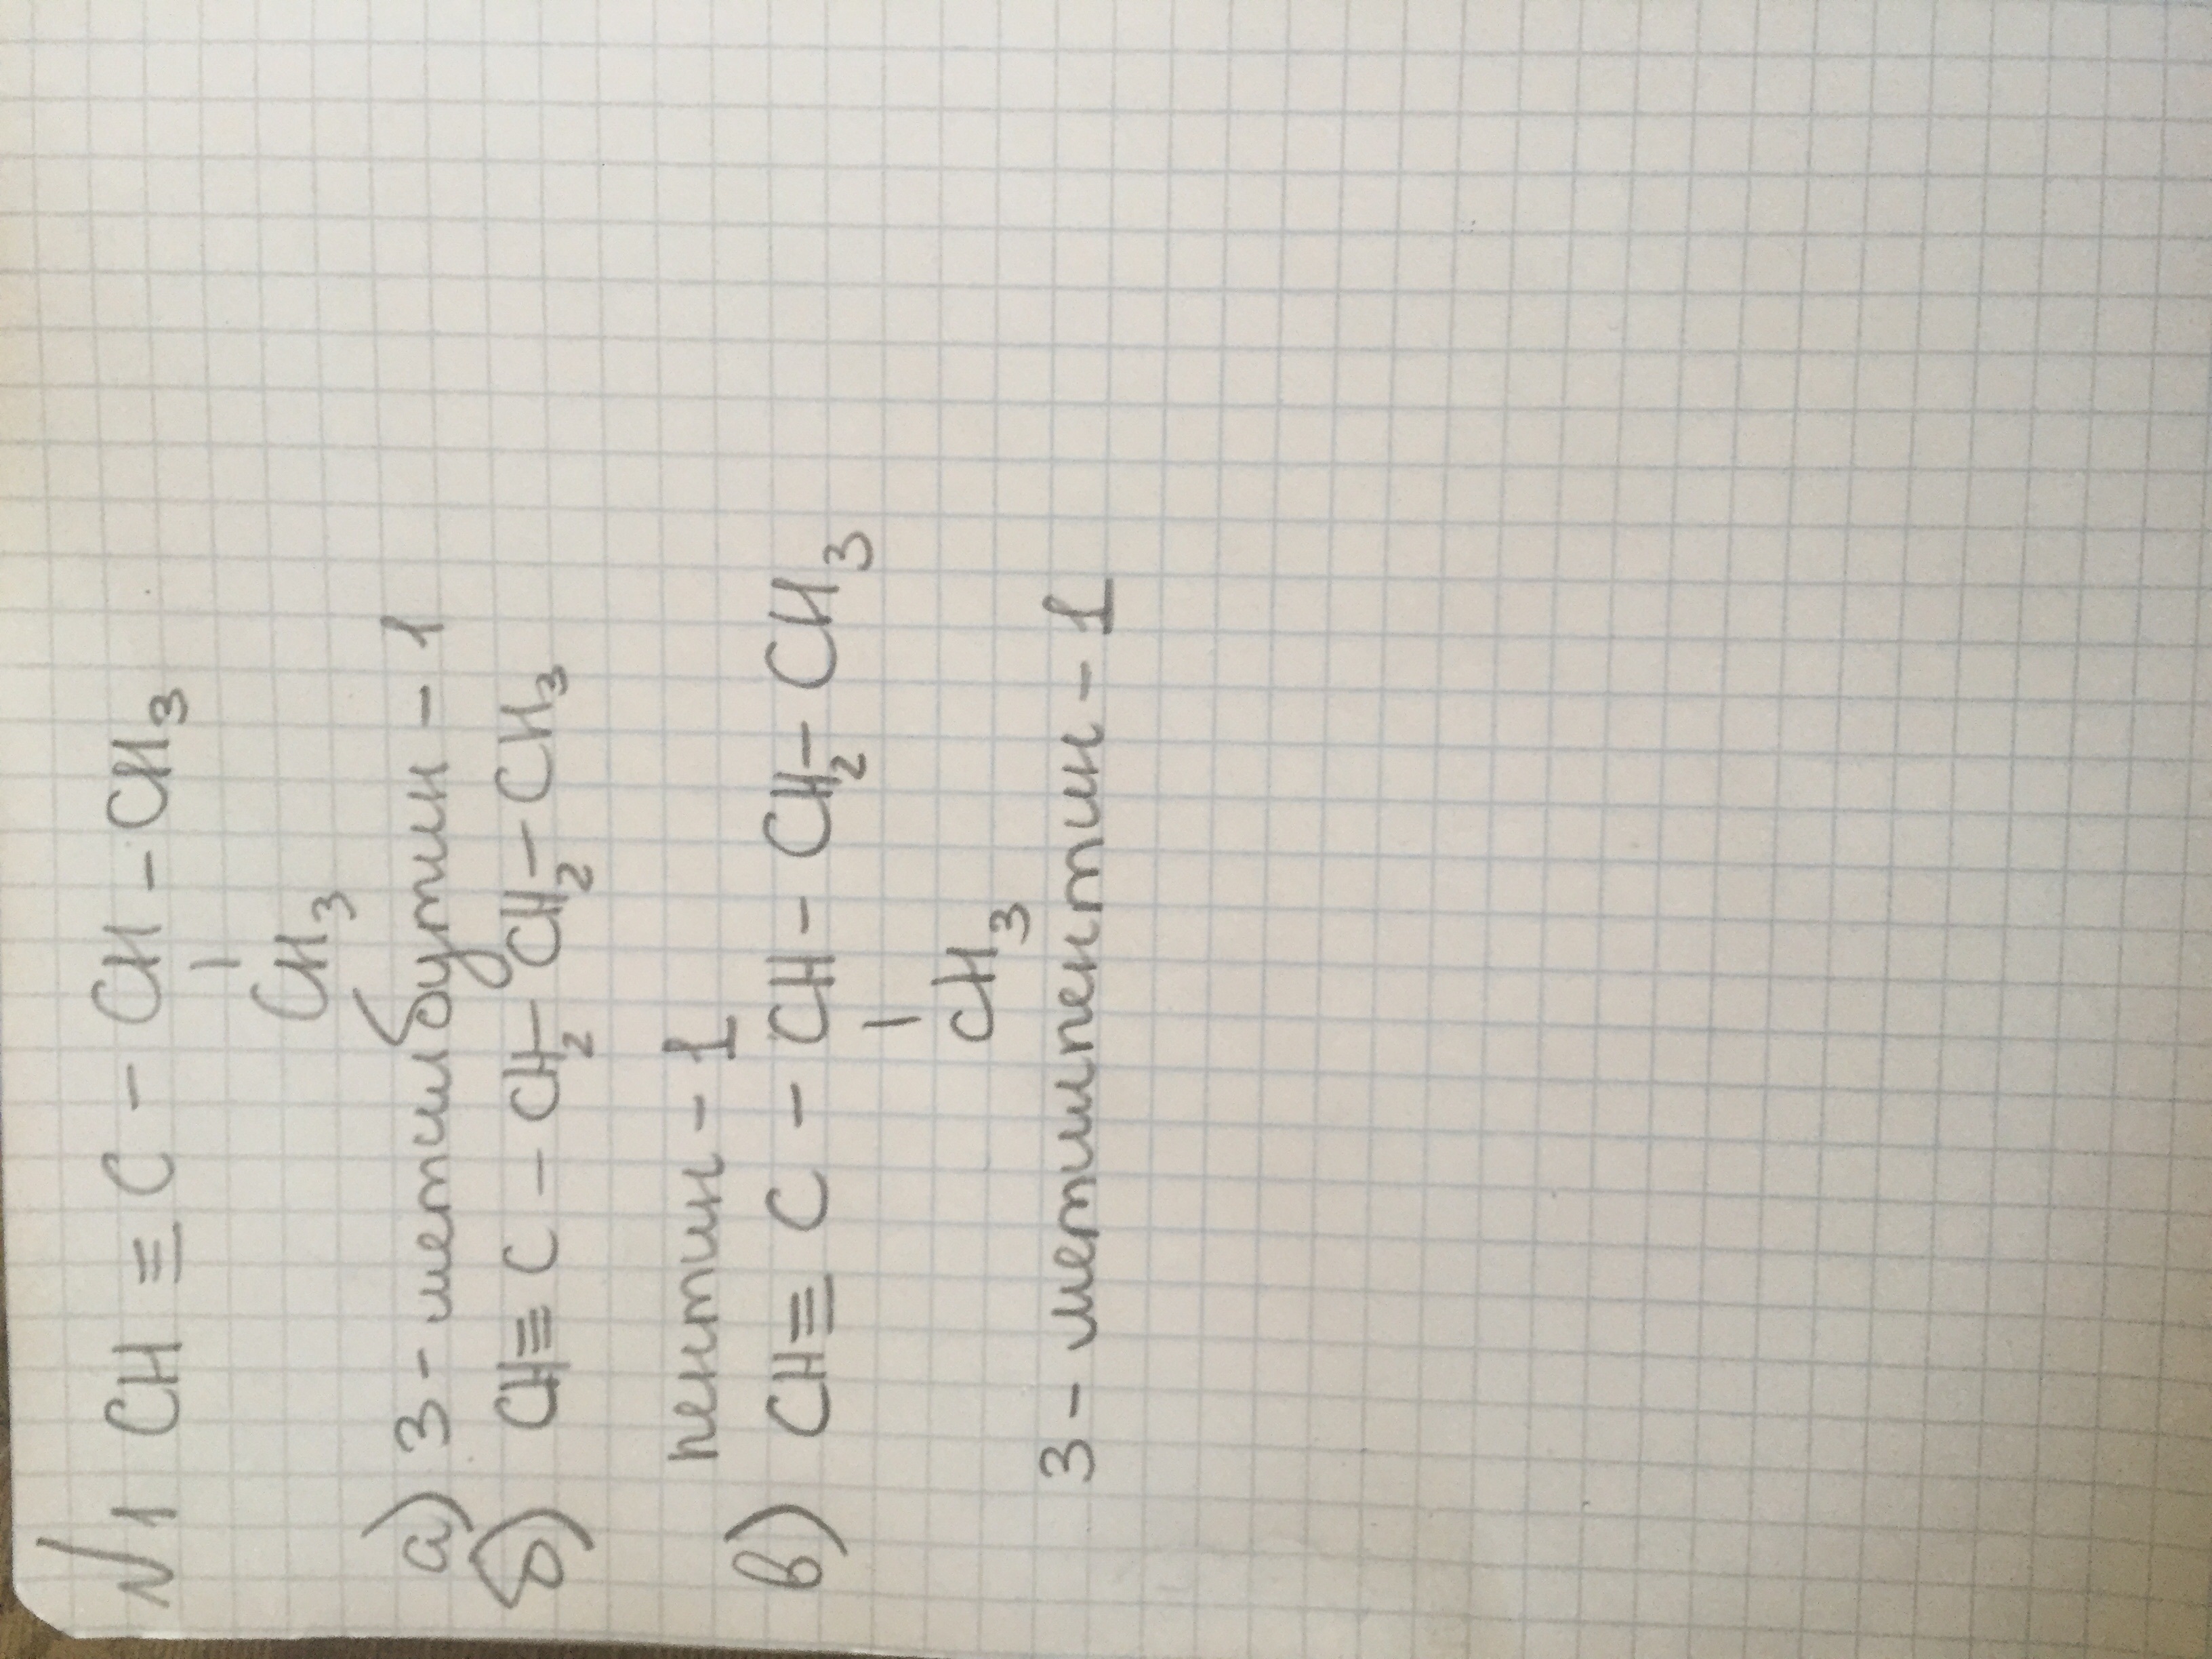 N1 CH ≡ C - CH - CH₃
|
CH₃
а) 3 - метилбутин - 1
б) CH ≡ C - CH₂ - CH₂ - CH₃
пентин - 1
в) CH ≡ C - CH - CH₂ - CH₃
|
CH₃
3 - метилпентин - 1